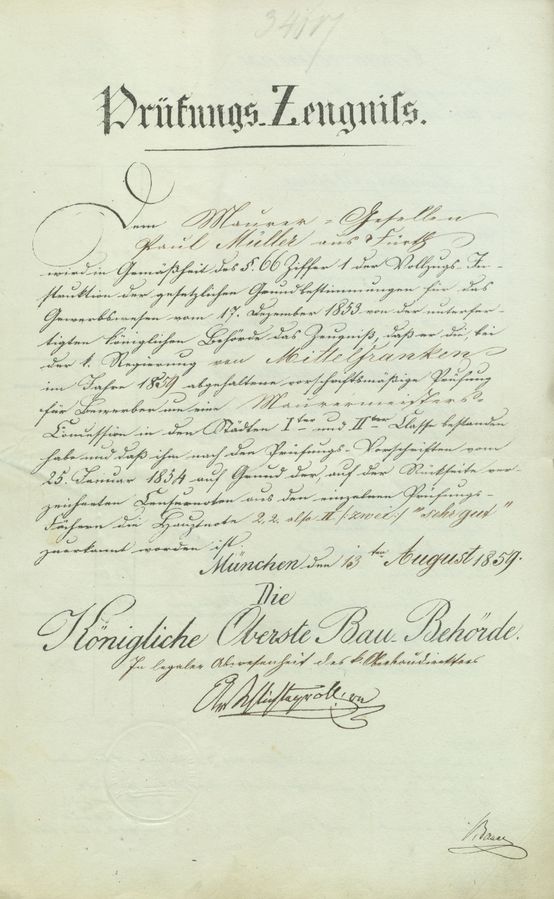 34117
Prüfungs-Zeugniss.
Dem Maurer-Gesellen
Paul Müller aus Fürth
wird in Gemäßheit des §. 66 Ziffer 1 der Vollzugs-In-
struktion der gesetzlichen Grundbestimmungen für das
Gewerbswesen vom 17. Dezember 1853 von der unterfer-
tigten königlichen Behörde das Zeugniß, daß er die, bei
der k. Regierung von Mittelfranken
im Jahre 1859 abgehaltene vorschriftsmäßige Prüfung
für Bewerber um eine Maurermeisters-
Concession in den Städten Iter und IIter Classe bestanden
habe und daß ihm nach den Prüfungs-Vorschriften vom
25. Januar 1834 auf Grund der, auf der Rückseite ver-
zeichneten Censurnoten aus den einzelnen Prüfungs-
fächern die Hauptnote 2,2. also II (zwei:) "sehr gut"
zuerkannt worden ist.
München den 13ten August 1859.
Die
Königliche Oberste Bau-Behörde.
In legaler Abwesenheit des k. Oberbaudirektors